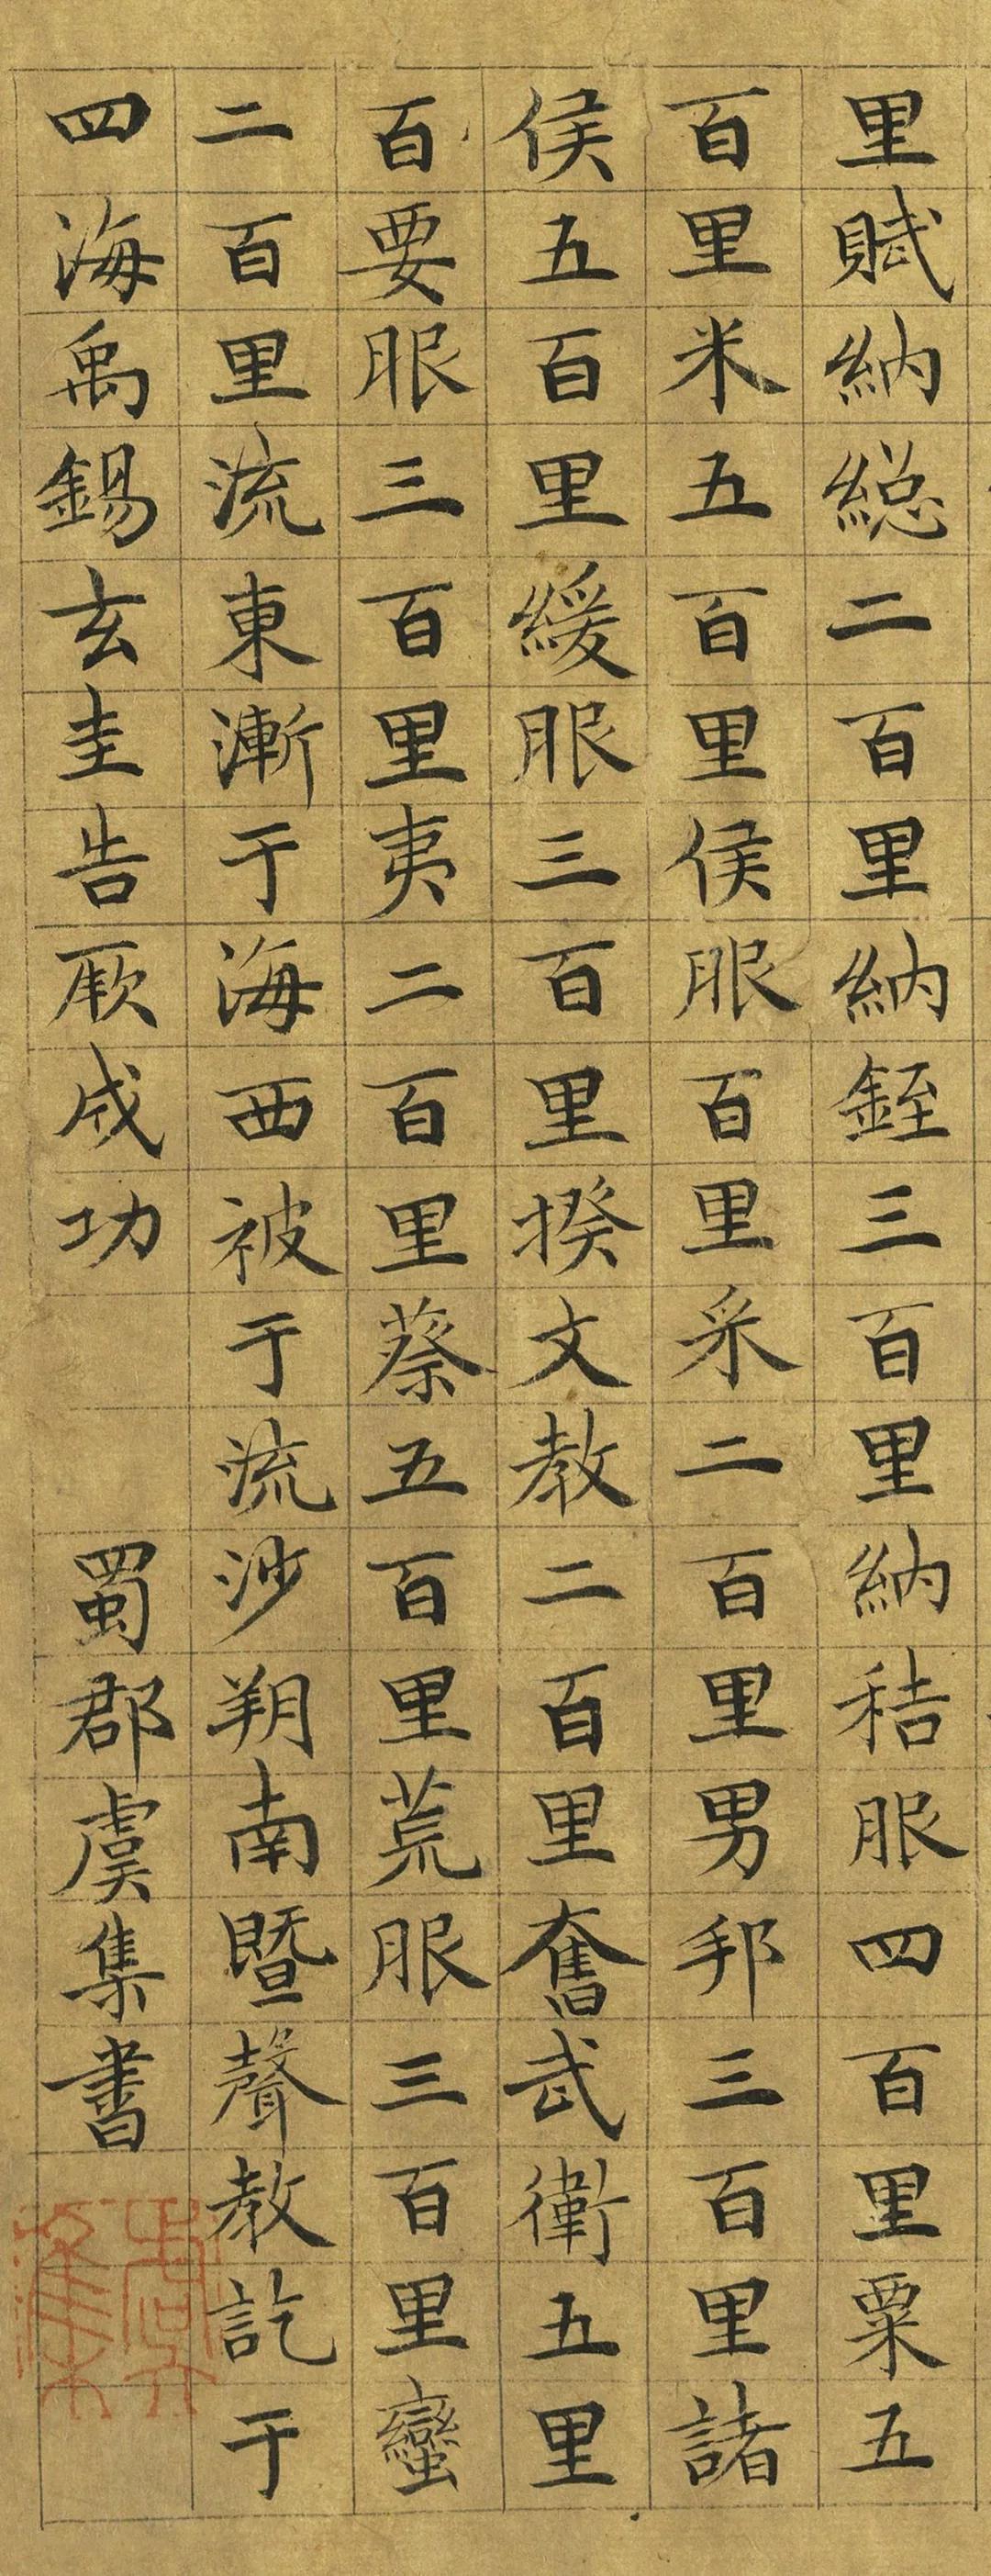 里賦納緫二百里納銍三百里納秸服四百里粟五
百里米五百里侯服百里采二百里男邦三百里諸
侯五百里綏服三百里揆文教二百里奮武衛五里
百要服三百里夷二百里蔡五百里荒服三百里蠻
二百里流東漸于海西被于流沙朔南曁聲教訖于
四海禹錫玄圭告厥成功 蜀郡虞集書